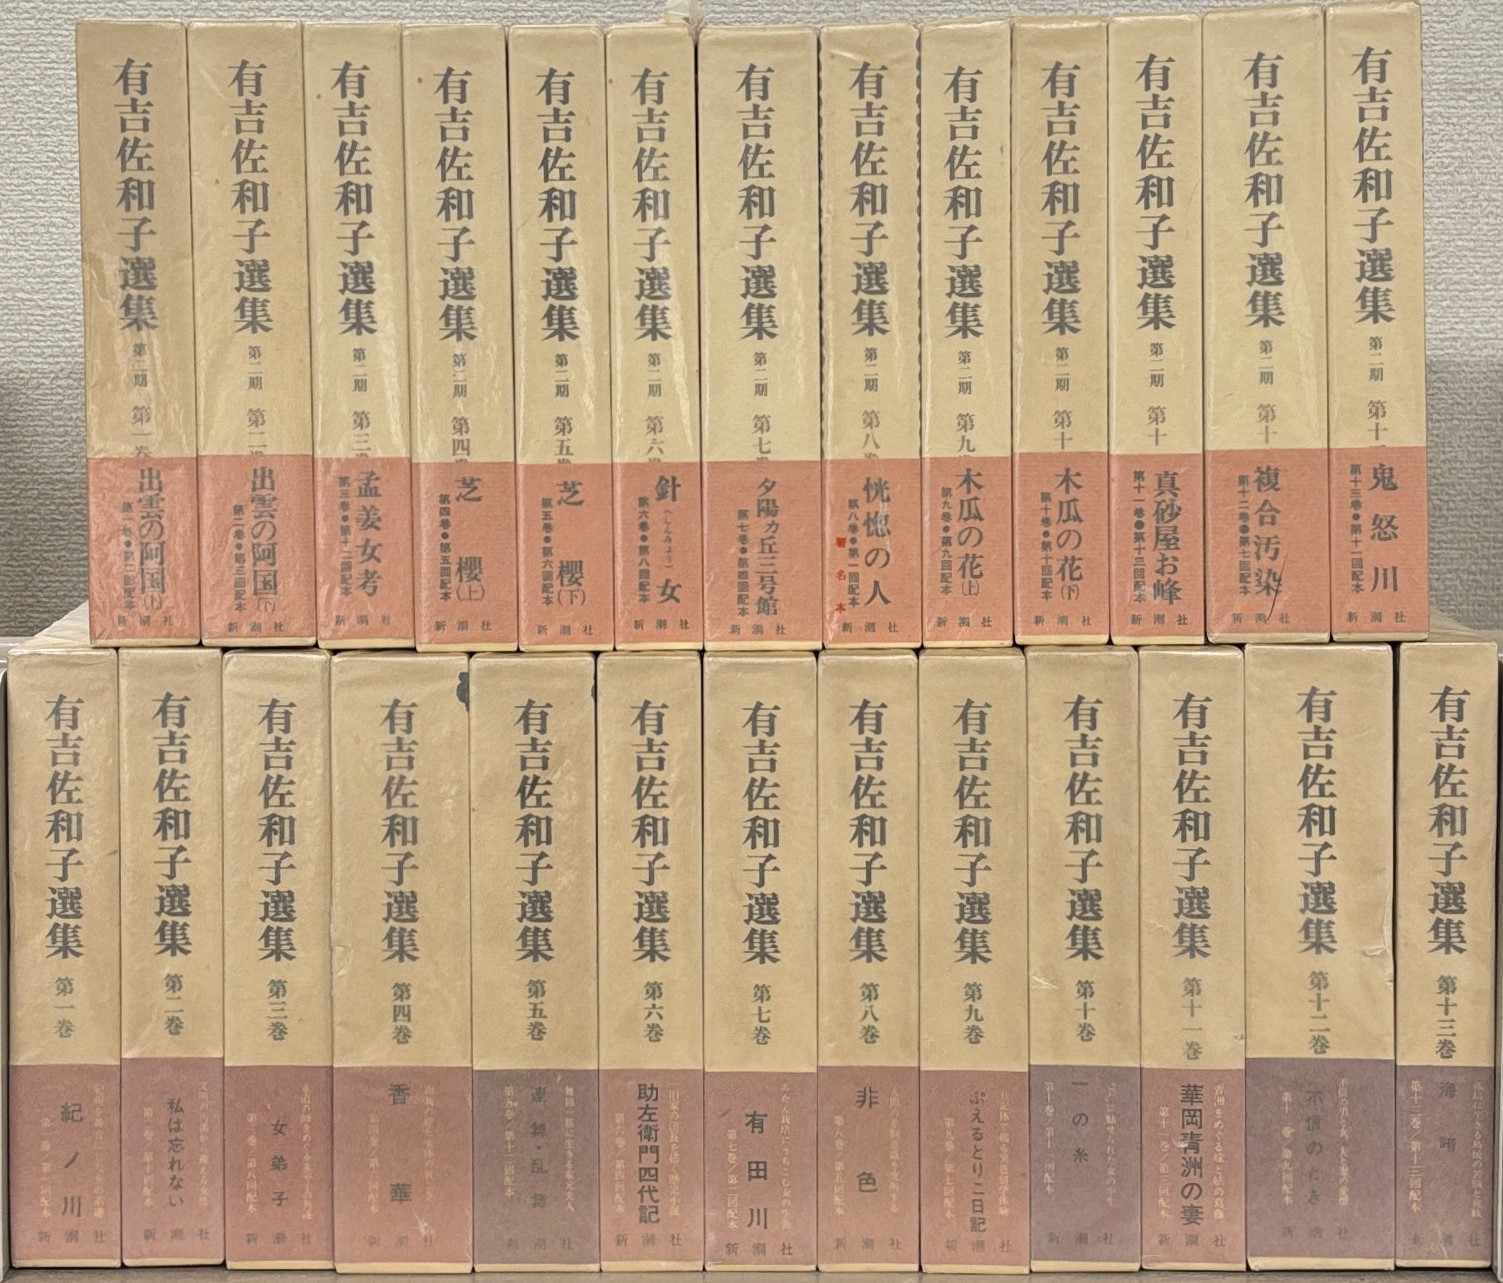 有吉佐和子選集 第二期 第一巻
出雲の阿国(上)
第一巻●第二回配本
新潮社
有吉佐和子選集 第二期 第二巻
出雲の阿国(下)
第二巻●第三回配本
新潮社
有吉佐和子選集 第二期 第三巻
孟姜女考
第三巻●第十二回配本
新潮社
有吉佐和子選集 第二期 第四巻
芝櫻(上)
第四巻●第五回配本
新潮社
有吉佐和子選集 第二期 第五巻
芝櫻(下)
第五巻●第六回配本
新潮社
有吉佐和子選集 第二期 第六巻
針女
第六巻●第八回配本
新潮社
有吉佐和子選集 第二期 第七巻
夕陽ヵ丘三号館
第七巻●第四回配本
新潮社
有吉佐和子選集 第二期 第八巻
恍惚の人
第八巻●第一回配本
署名本
新潮社
有吉佐和子選集 第二期 第九
木瓜の花(上)
第九巻●第九回配本
新潮社
有吉佐和子選集 第二期 第十
木瓜の花(下)
第十巻●第十回配本
新潮社
有吉佐和子選集 第二期 第十
真砂屋お峰
第十一巻●第十三回配本
新潮社
有吉佐和子選集 第二期 第十
複合汚染
第十二巻●第七回配本
新潮社
有吉佐和子選集 第二期 第十
鬼怒川
第十三巻●第十一回配本
新潮社
有吉佐和子選集 第一巻
紀ノ川
新潮社
有吉佐和子選集 第二巻
私は忘れない
新潮社
有吉佐和子選集 第三巻
女弟子
第三巻/第八回配本
新潮社
有吉佐和子選集 第四巻
香華
新潮社
有吉佐和子選集 第五巻
連舞・乱舞
第五巻/第十二回配本
新潮社
有吉佐和子選集 第六巻
助左衛門四代記
第六巻/第四回配本
新潮社
有吉佐和子選集 第七巻
有田川
第七巻/第二回配本
新潮社
有吉佐和子選集 第八巻
非色
第八巻/第五回配本
新潮社
有吉佐和子選集 第九巻
ぷえるとりこ日記
第九巻/第七回配本
新潮社
有吉佐和子選集 第十巻
一の糸
新潮社
有吉佐和子選集 第十一巻
華岡青洲の妻
第十一巻/第三回配本
新潮社
有吉佐和子選集 第十二巻
不信のとき
第十二巻/第九回配本
新潮社
有吉佐和子選集 第十三巻
海暗
第十三巻/第十三回配本
新潮社